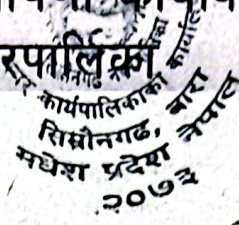 रपालिका
कार्यपालिकाको कार्यालय
सिम्रौनगढ, बारा
मधेश प्रदेश नेपाल
२०७३